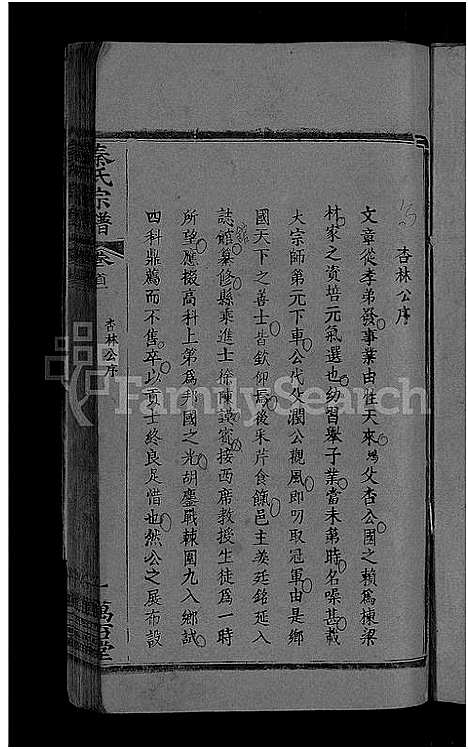 杏林公序
文章從孝弟發事業由性天來鴻父杏公國之賴爲棟梁
林家之資培元氣選也幼習舉子業當未第時名噪甚載
大宗師第元下車公代父潤公觀風即叨取冠軍由是鄉
國天下之善士皆欽仰焉後采芹食餼邑主姜廷銘延入
誌館纂修縣乘進士徐陳謨賓接西席教授生徒爲一時
所望應掇高科上第爲邦國之光胡鏖戰棘圍九入鄉試
四科鼎薦而不售卒以貢士終良足惜也然公之展布設
秦氏宗譜
卷首
杏林公序
一
萬石堂
FamilySearch